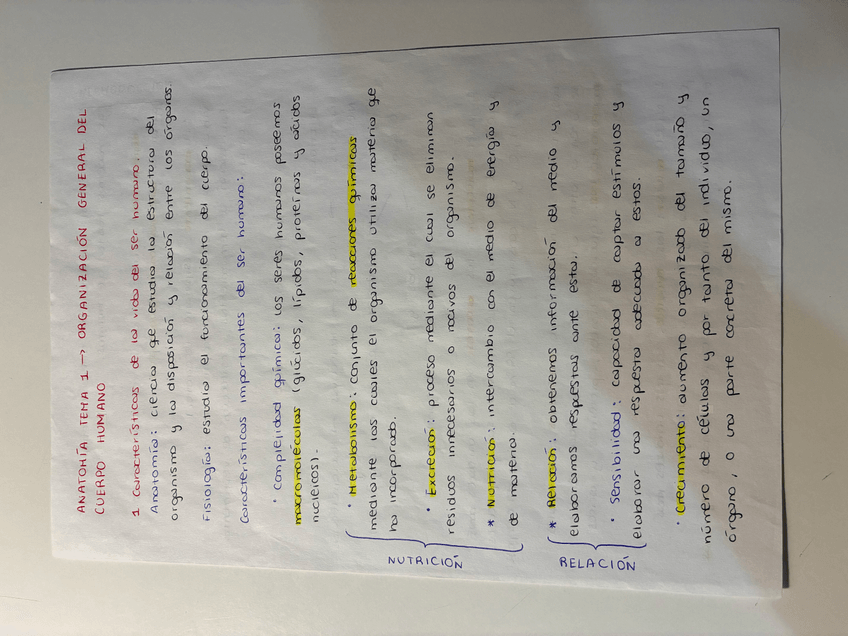 ANATOMÍA TEMA 1 -> ORGANIZACIÓN GENERAL DEL
CUERPO HUMANO
1 Características de la vida del ser humano.
Anatomía: ciencia que estudia la estructura del
organismo y la disposición y relación entre los órganos.
Fisiología: estudia el funcionamiento del cuerpo.
Características importantes del ser humano:
· Complejidad química: los seres humanos poseemos
macromoléculas (glúcidos, lípidos, proteínas y ácidos
nucleicos).
· Metabolismo: conjunto de reacciones químicas
mediante las cuales el organismo utiliza materia que
ha incorporado.
· Excreción: proceso mediante el cual se eliminan
residuos innecesarios o nocivos del organismo.
* Nutrición: intercambio con el medio de energía y
de materia.
NUTRICIÓN
* Relación: obtenemos información del medio y
elaboramos respuestas ante esta.
· Sensibilidad: capacidad de captar estímulos y
elaborar una respuesta adecuada a estos.
RELACIÓN
· Crecimiento: aumento organizado del tamaño y
número de células y por tanto del individuo, un
órgano, o una parte concreta del mismo.